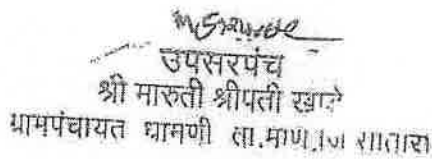 उपसरपंच
श्री मारुती श्रीपती खाडे
ग्रामपंचायत धामणी ता.माण,जि सातारा